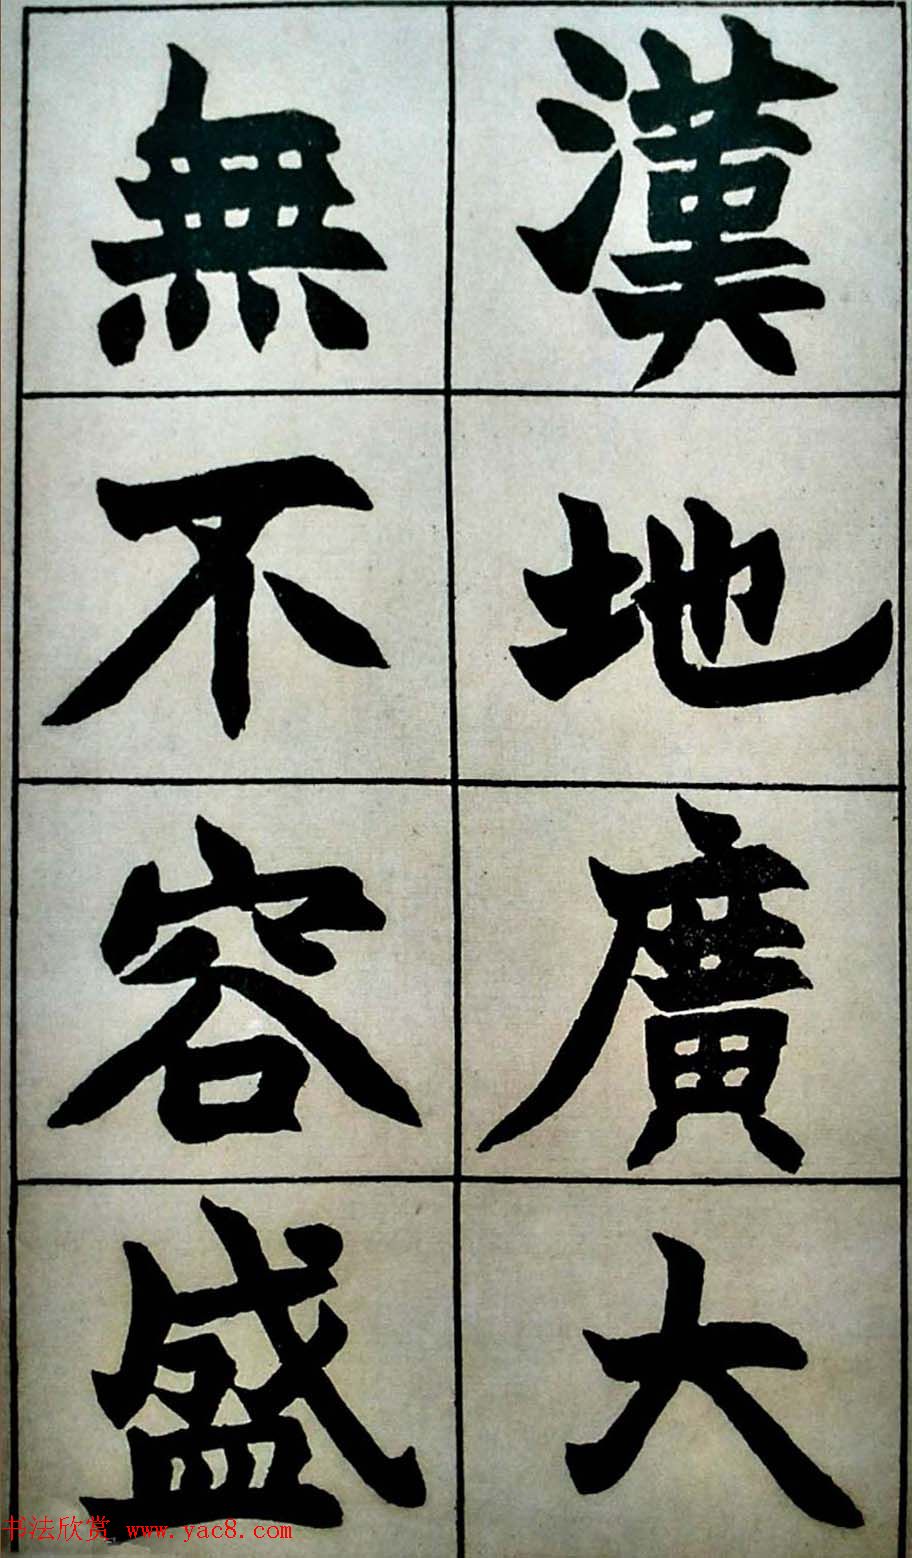 漢地廣大
無不容盛
书法欣赏 www.yac8.com